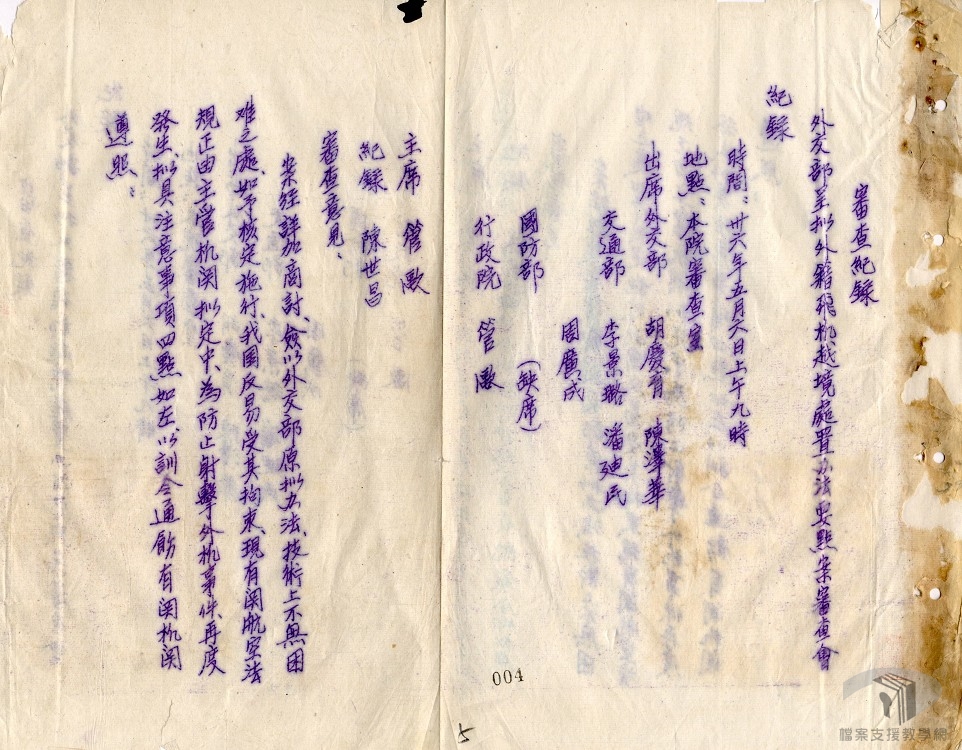 審查紀錄
外交部呈拟外籍飛机越境處置办法要點案審查會
紀錄
時間：卅六年五月六日上午九時
地點：本院審查室
出席外交部 胡慶育 陳澤華
交通部 李景潞 潘廸民
周廣成
國防部 （缺席）
行政院 管
主席 管
紀錄 陳世昌
審查意見：
案經詳加商討、僉以外交部原拟办法、技術上不無困
难之處、如予核定施行、我國反易受其拘束、現有関航空法
規正由主管机関拟定中、為防止射擊外机事件再度
發生、拟具注意事項四點如左、以訓令通飭有関机関
遵照：
004
5
檔案支援教學網